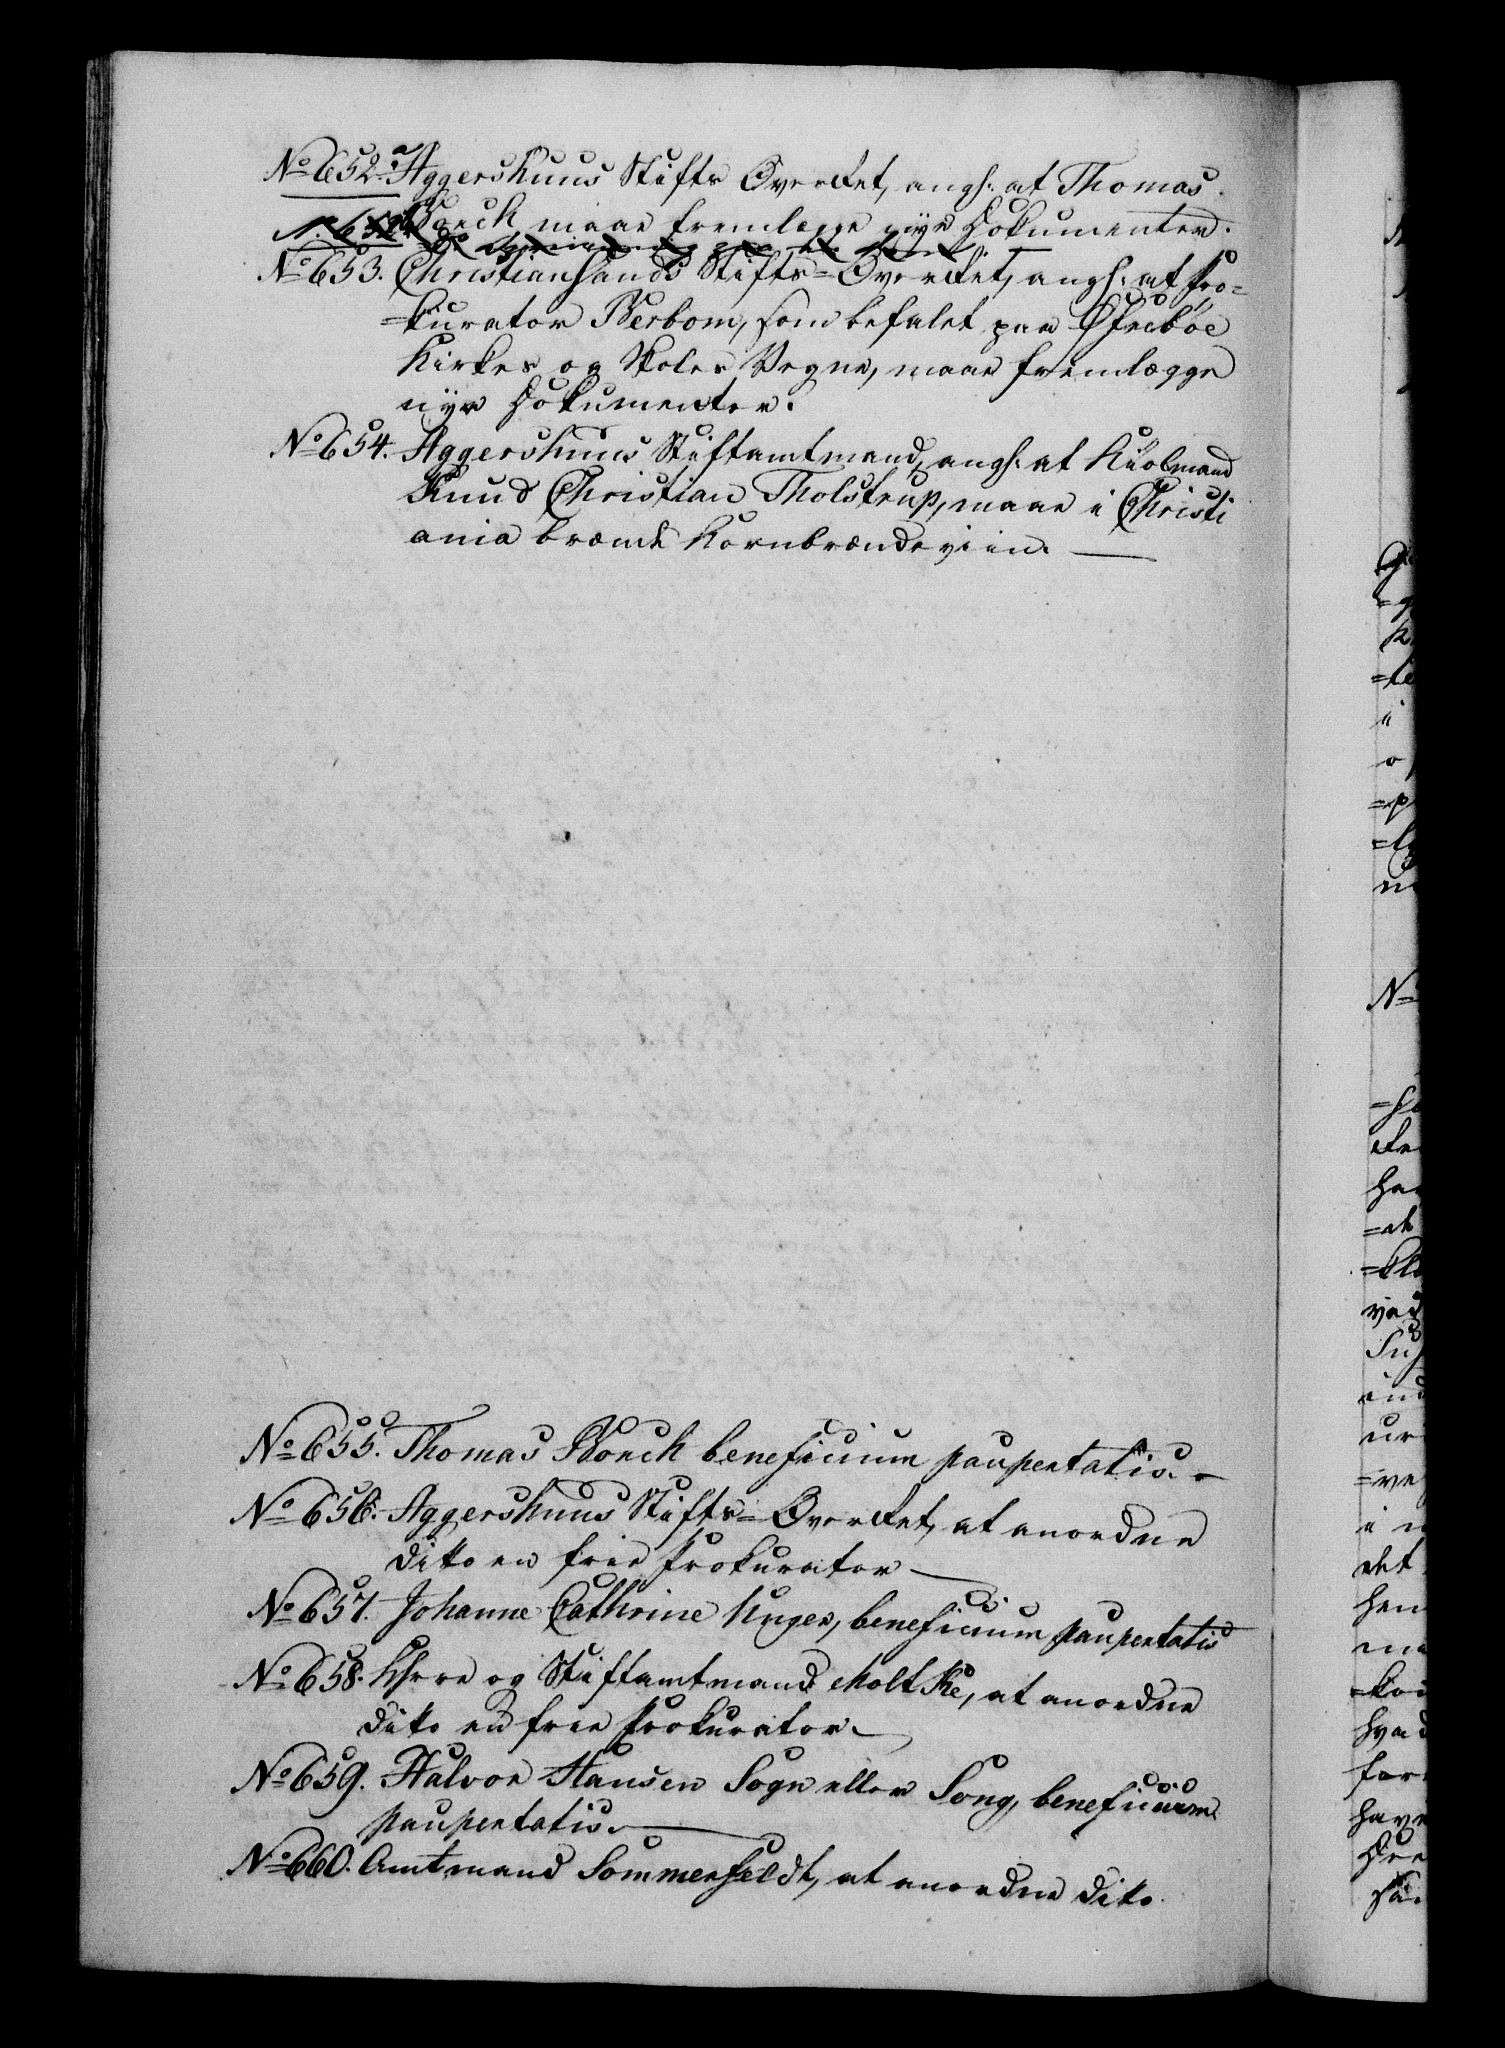 No 652.a Aggershuus Stifts Overret, angh: at Thomas
Borch maae fremlægge nye Dokumenter.
No 653. Christiansands Stifts=Overret, angh: at Pro=
=kurator Berbom, som befalet paa Øfrebøe
Kirkes og Skoles Vegne, maae fremlægge
nye Dokumenter.
No 654. Aggershuus Stiftamtmand, angh: at Kiøbmand
Knud Christian Tholstrup, maae i Christi
ania brænde Kornbrændeviin.
No 655. Thomas Borch beneficium paupertatis.
No 656. Aggershuus Stifts=Overret, at anordne
dito en frie Prokurator
No 657. Johanne Cathrine Unger, beneficium paupertatis
No 658. Herre og Stiftamtmand Moltke, at anordne
dito en frie Prokurator.
No 659. Halvor Hansen Sogn eller Song, beneficium
paupertatis.
No 660. Amtmand Sommerfeldt, at anordne dito